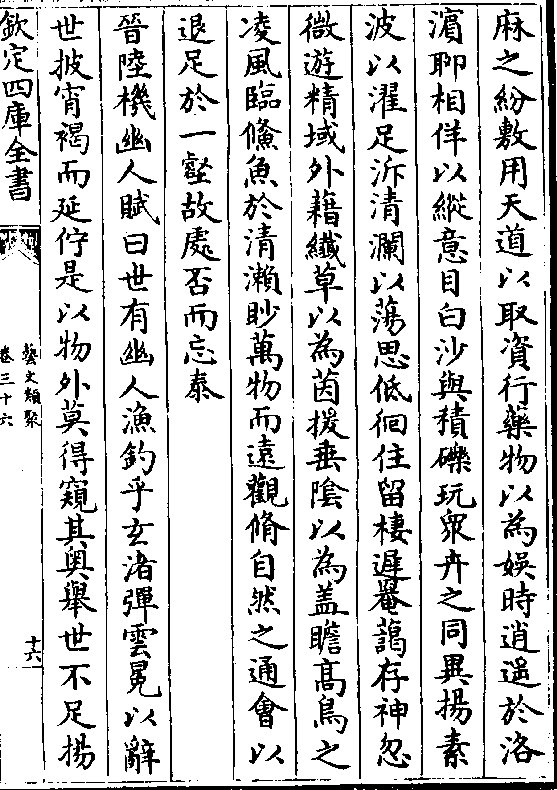 麻之紛敷用天道以取資行藥物以為娛時逍遥於洛
濵聊相佯以縱意目白沙與積礫玩衆卉之同異揚素
波以濯足泝清瀾以蕩思低徊住留棲遲菴藹存神忽
微遊精域外藉纖草以為茵援垂陰以為盖瞻髙鳥之
凌風臨鯈魚於清瀨眇萬物而遠觀脩自然之通會以
退足於一壑故處否而忘泰
晉陸機幽人賦曰世有幽人漁釣乎玄渚彈雲冕以辭
世披宵褐而延佇是以物外莫得窺其奥舉世不足揚
欽定四庫全書
藝文類聚
卷三十六
十六